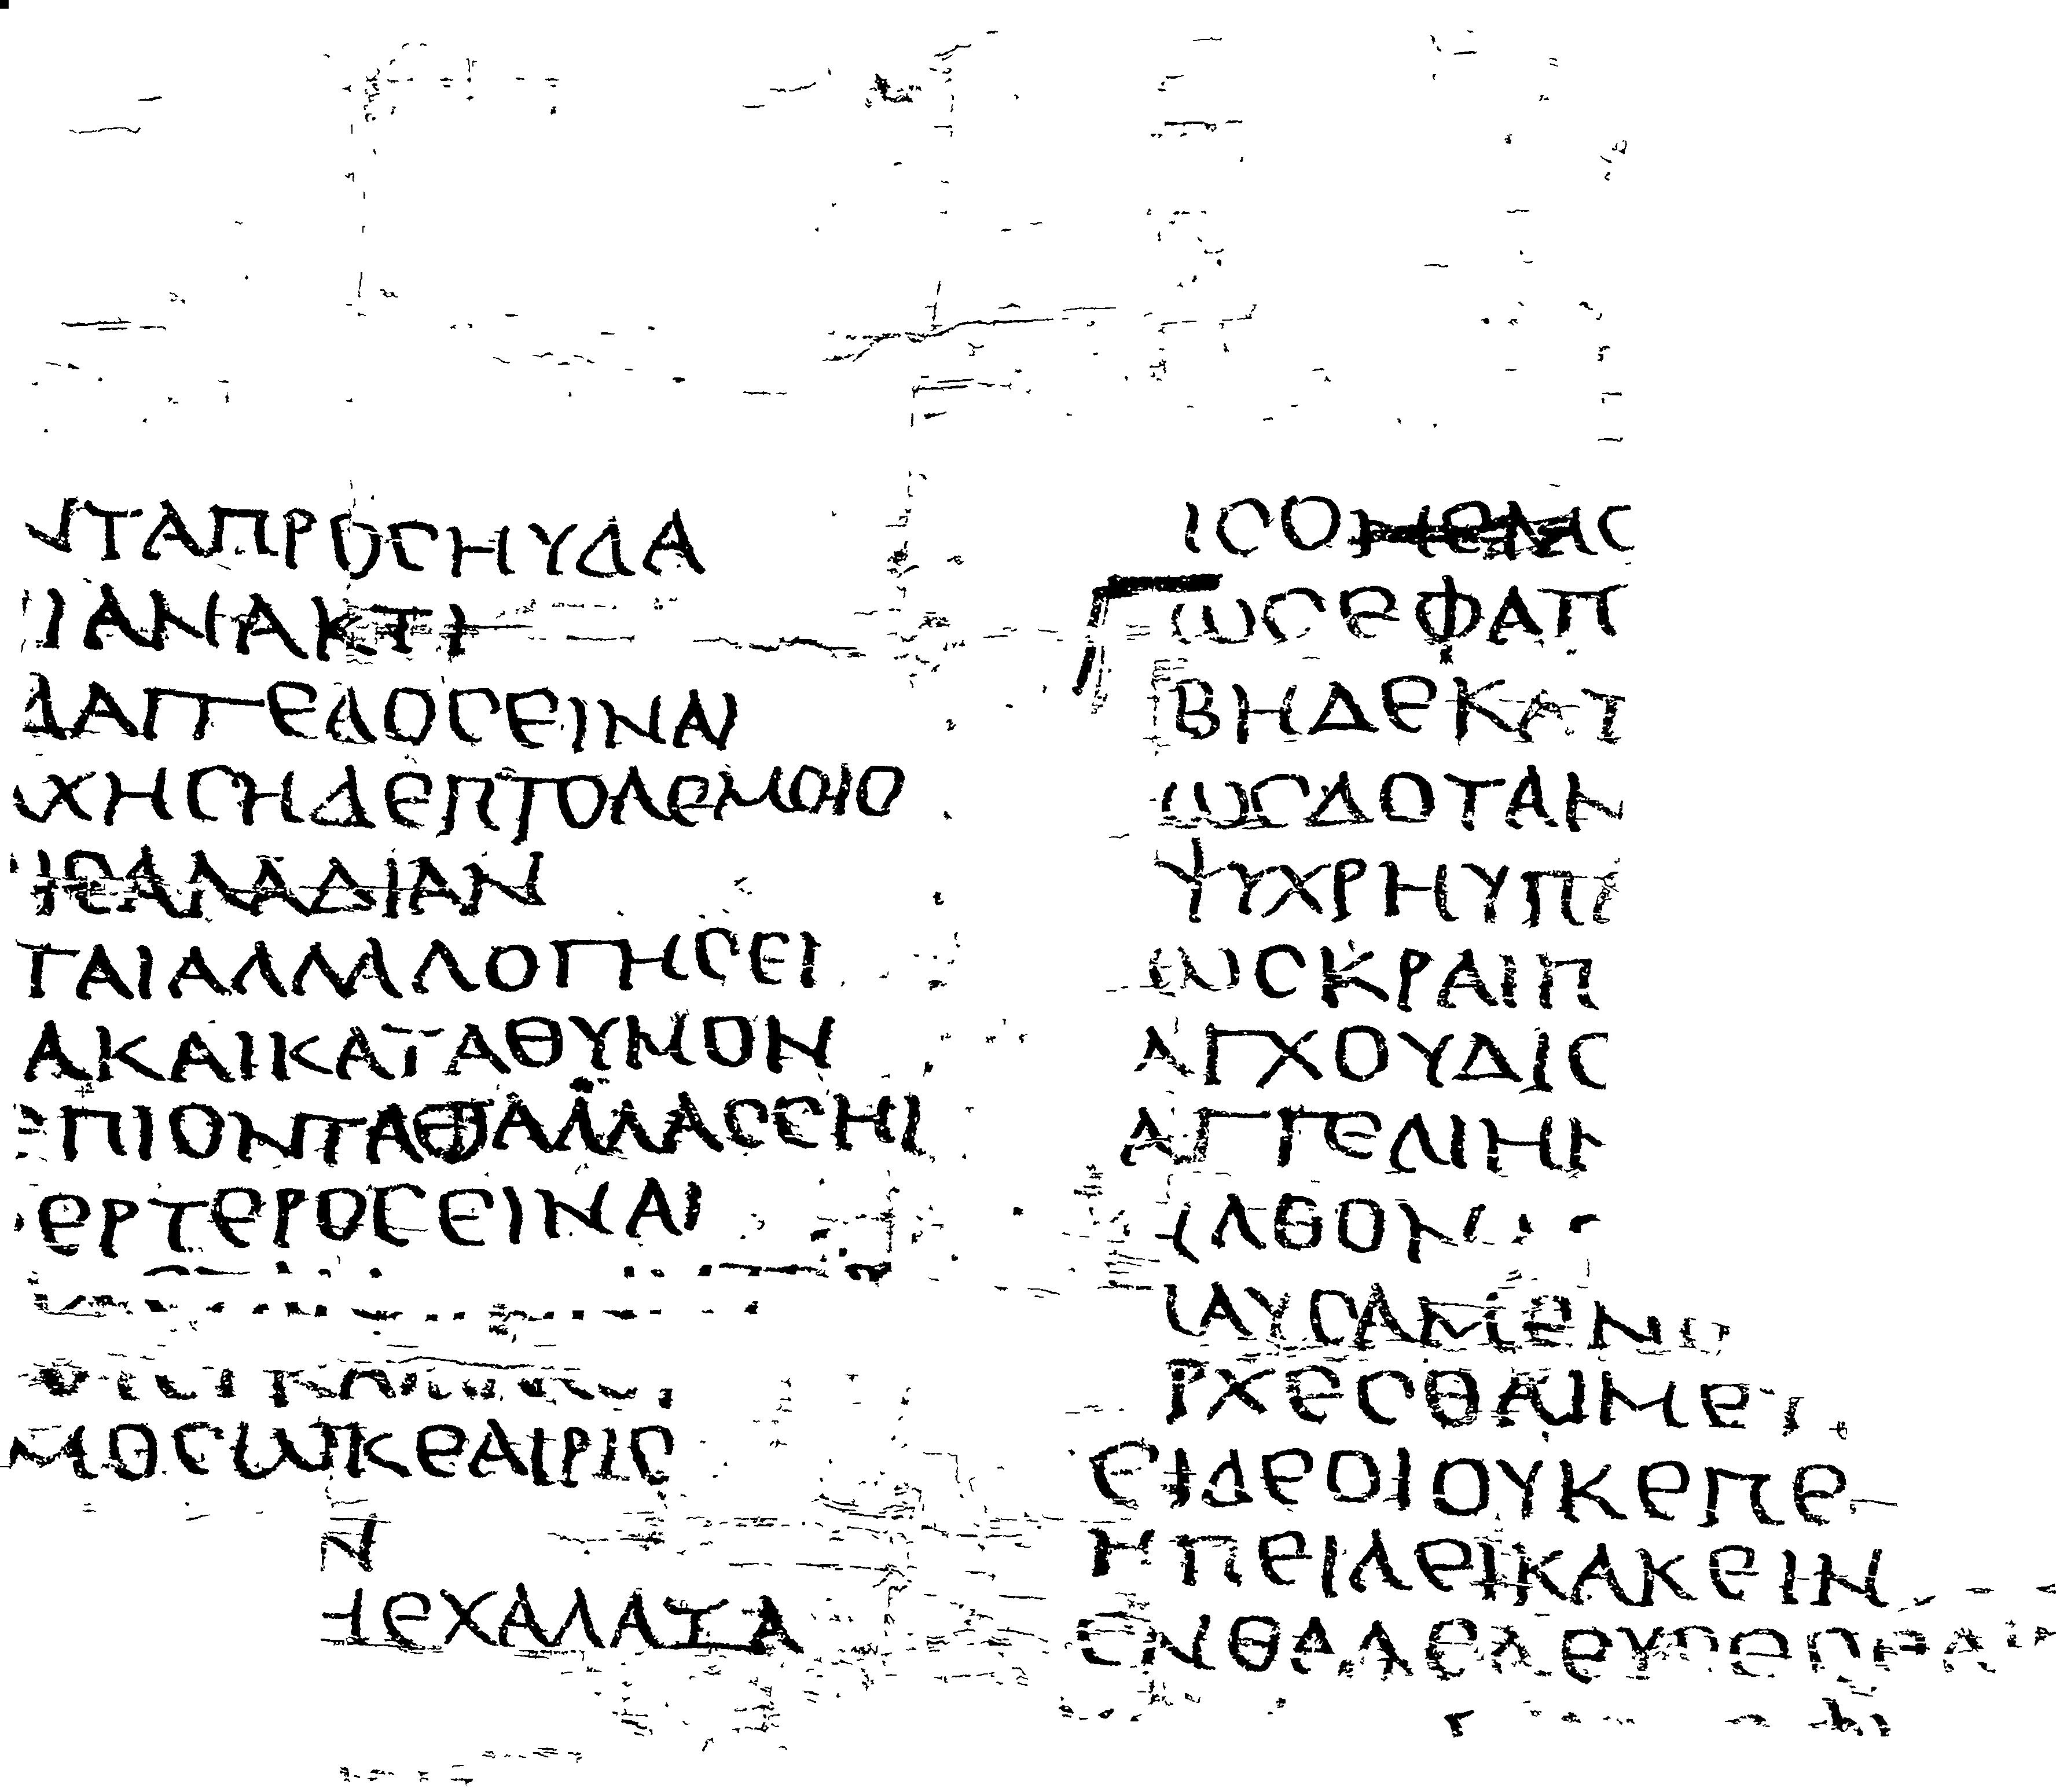 ΝΤΑΠΡΟСΗΥΔΑ
ΙΑΝΑΚΤΙ
ΔΑΓΓΕΛΟСΕΙΝΑΙ
ΑΧΗСΗΔΕΠΤΟΛΕΜΟΙΟ
ΙΕΑΛΑΔΙΑΝ
ΤΑΙΑΛΛΑΛΟΓΗСΕΙ
ΑΚΑΙΚΑΤΑΘΥΜΟΝ
ΕΠΙΟΝΤΑΘΑΛΑССΗΙ
ΕΡΤΕΡΟСΕΙΝΑΙ
ΜΟСΩΚΕΑΙΡΙС
Ν
ΗΕΧΑΛΑΤΑ
ΙСΟΝΕΜΙС
ΩСΕΦΑΠ
ΒΗΔΕΚΑΤ
ΩСΔΟΤΑΝ
ΨΥΧΡΗΥΠ
ΩСΚΡΑΙΠ
ΑΓΧΟΥΔΙС
ΑΓΓΕΛΙΗΝ
ΗΛΘΟΝ
ΠΑΥСΑΜΕΝΟ
ΡΧΕСΘΑΙΜΕΤ
ΕΙΔΕΟΙΟΥΚΕΠΕ
ΗΠΕΙΛΕΙΚΑΚΕΙΝ
ΕΝΘΑΔΕΛΕΥСΕСΘΑΙ